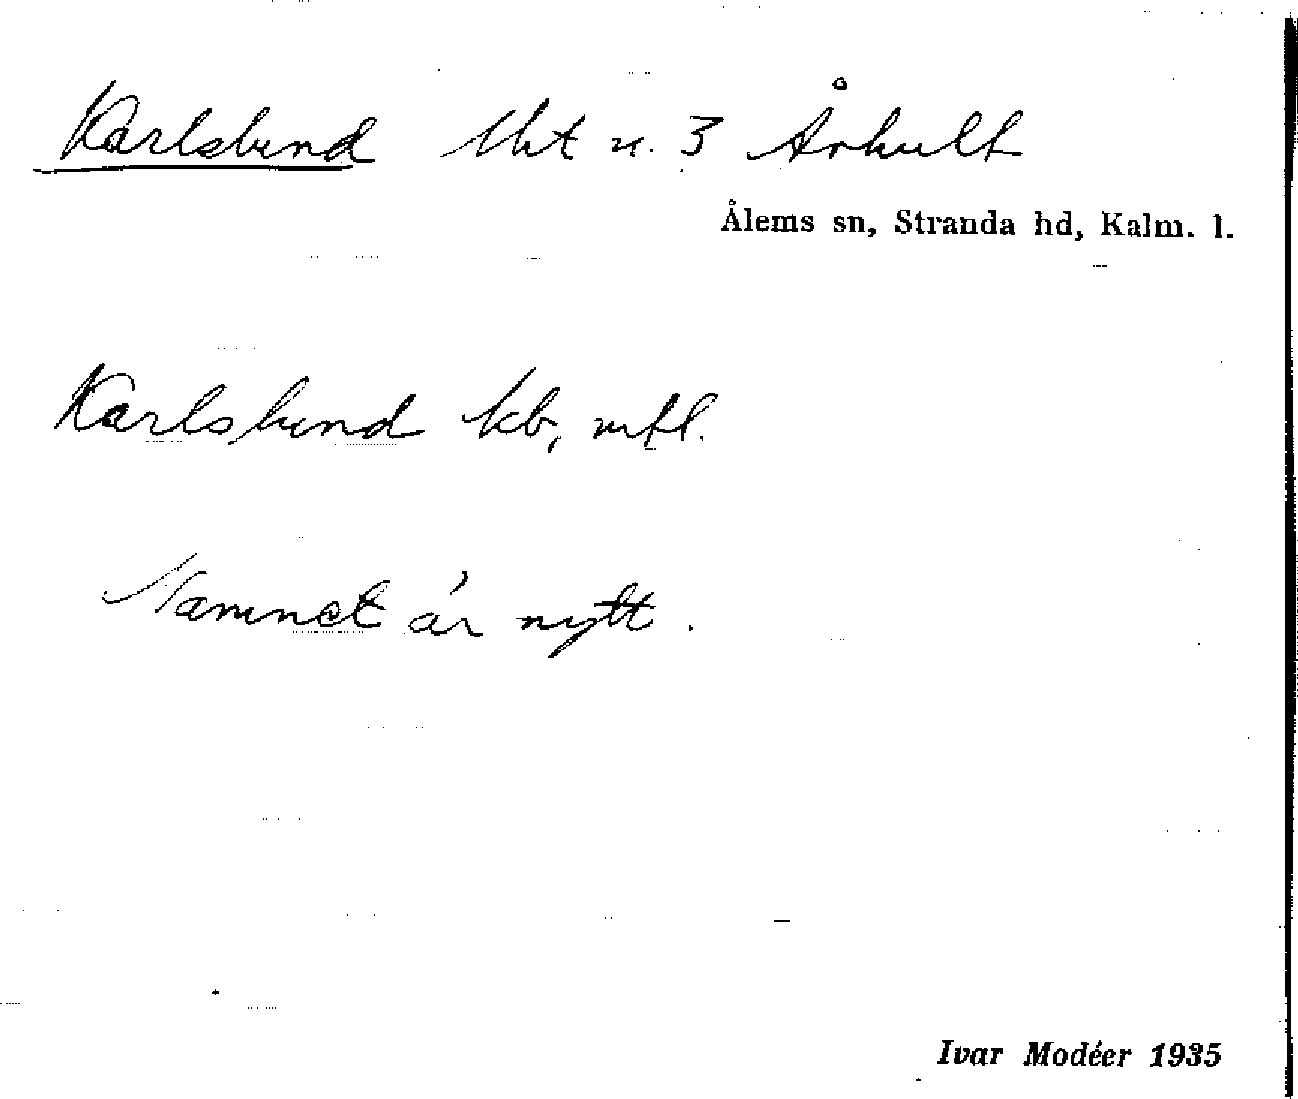 Karlslund lht u. 3 Århult
Ålems sn, Stranda hd, Kalm. l.
Karlslund kb, mtl.
Namnet är nytt.
Ivar Modéer 1935